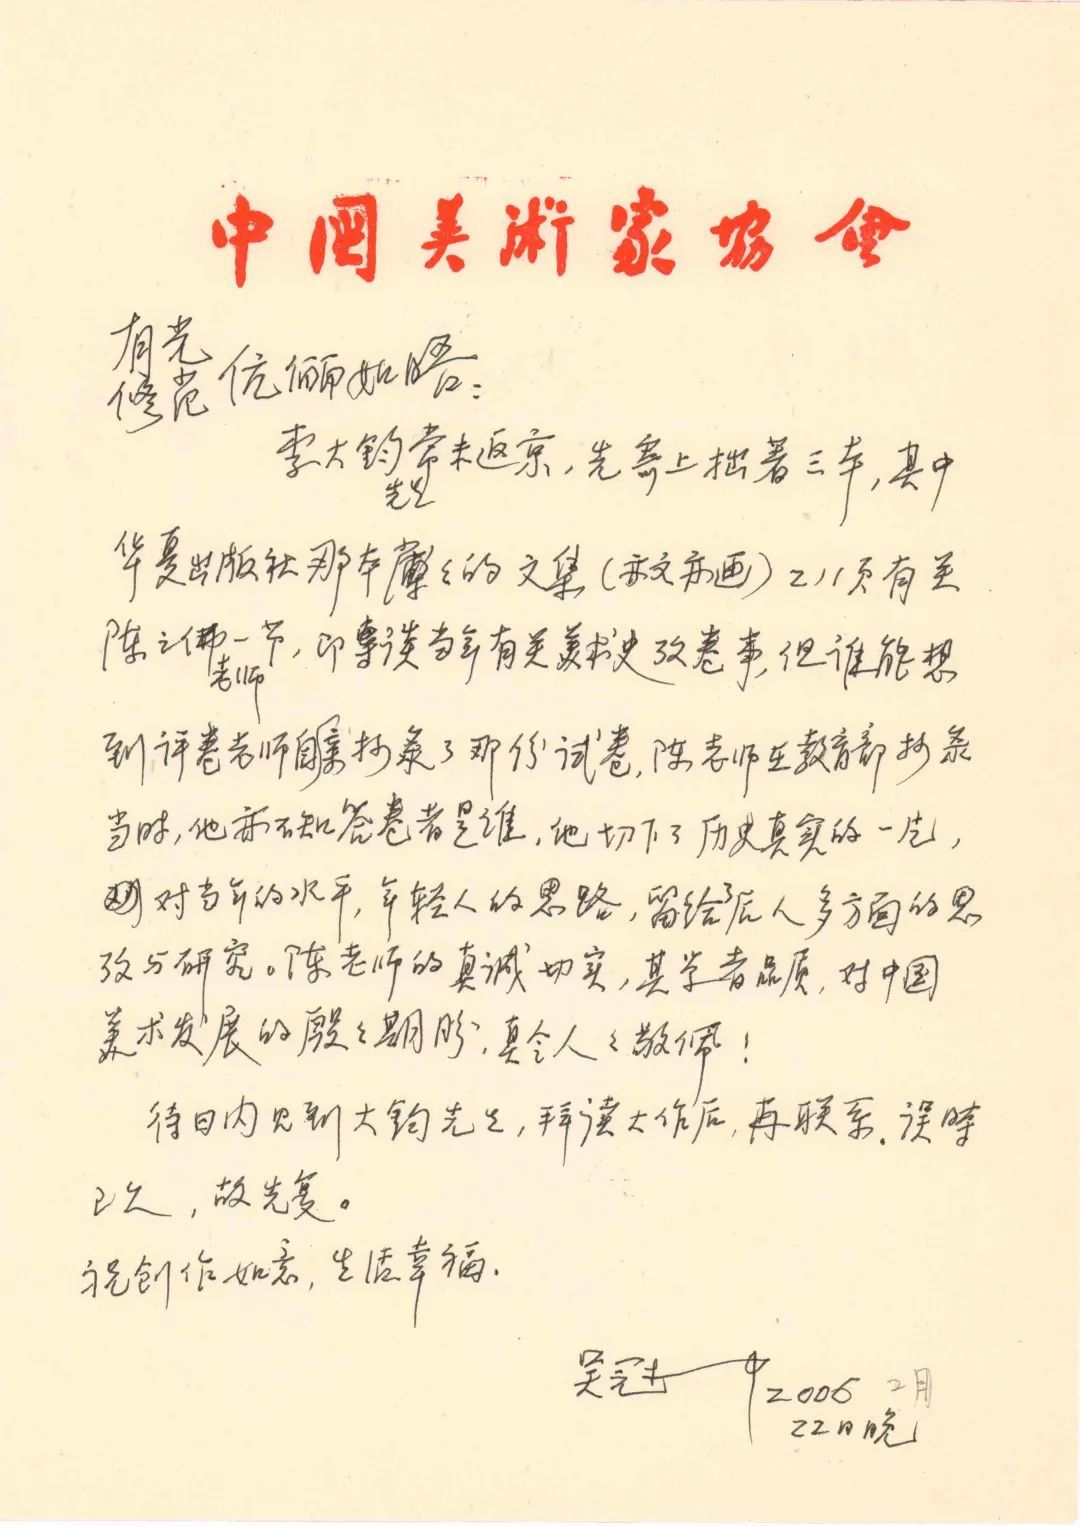 中国美術家协會
有光
修范 伉俪如晤：
李大钧先生尚未返京，先寄上拙著三本，其中
华夏出版社那本厚厚的文集（亦文亦画）211页有关
陈之佛老师一节，即专谈当年有关美术史考卷事，但谁能想
到评卷老师自抄录了那份试卷，陈老师在教育部抄录
当时，他亦不知答卷者是谁，他切下了历史真实的一片，
对当年的水平，年轻人的思路，留给了后人多方面的思
考与研究。陈老师的真诚切实，其学者品质，对中国
美术发展的殷殷期盼，真令人人敬佩！
待日内见到大钧先生，拜读大作后，再联系。误时
已久，故先复。
祝创作如意，生活幸福。
吴冠中 2006 2月
22日晚